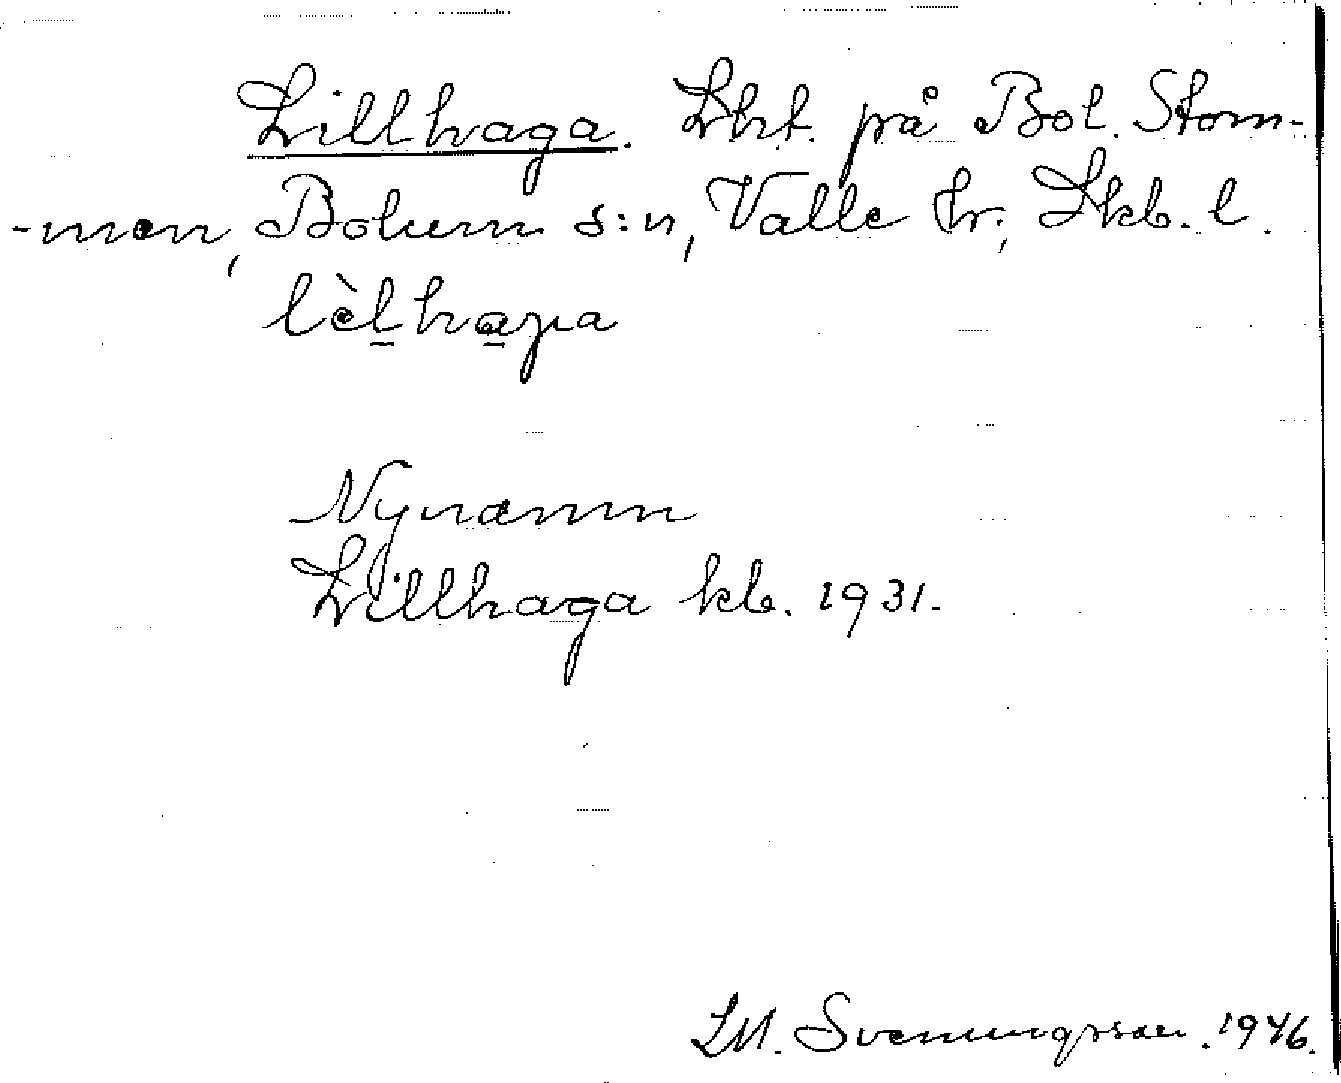 Lillhaga. Lht. på Bol. Stom-
-men, Bolum s:n, Valle hr; Skb. l.
lèlhaga
Nynamn
Lillhaga kb. 1931.
LM. Svenungsson. 1946.